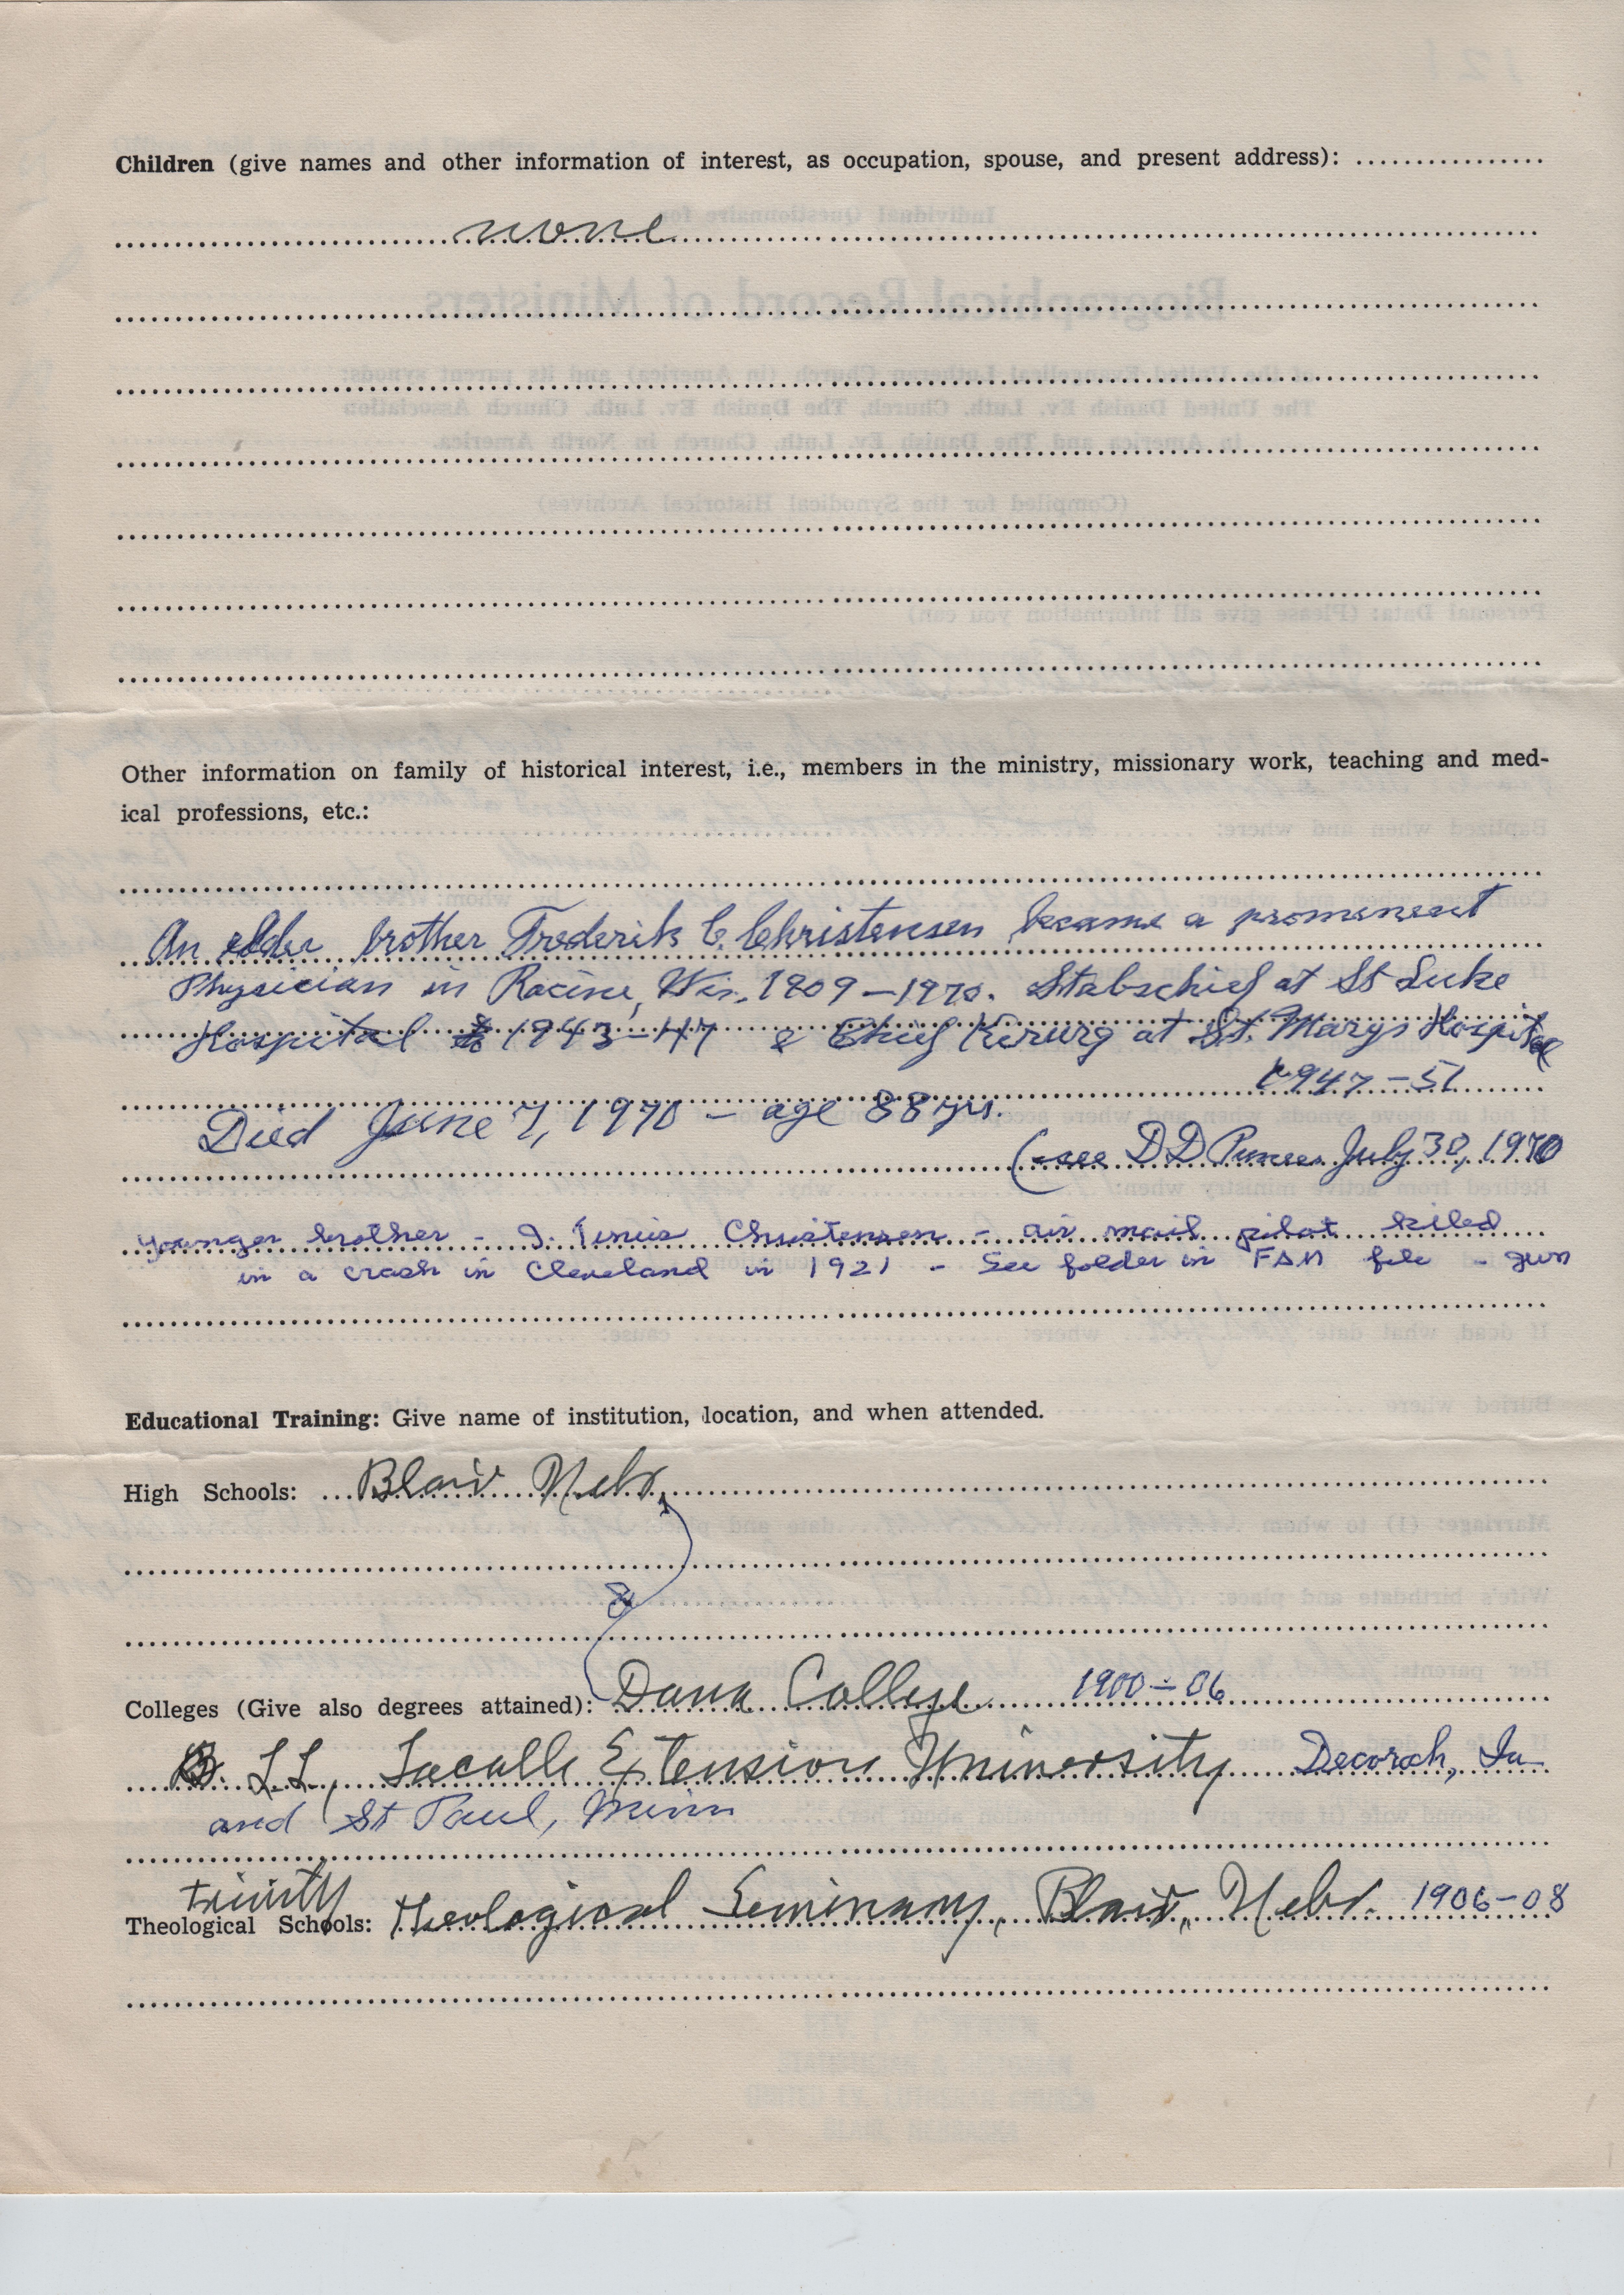 Children (give names and other information of interest, as occupation, spouse, and present address):
none
Other information on family of historical interest, i.e., members in the ministry, missionary work, teaching and med-
ical professions, etc.:
An elder brother Frederik C. Christensen became a prominent
Physician in Racine, Wis. 1909-1970. Stabschief at St Luke
Hospital 1943-47 & Chief Kirurg at St. Marys Hospital
1947-51
Died June 7, 1970 - age 88 yrs.
(see D D July 30, 1970
younger brother - Christensen - air mail pilot killed
in a crash in Cleveland in 1921 - See folder in file -
Educational Training: Give name of institution, location, and when attended.
High Schools: Blair Nebr.
&
Colleges (Give also degrees attained): Dana College 1900-06
L.L., Lacalle Extension University Decorah, Ia
and St Paul, Minn
Trinity
Theological Schools: Theological Seminary, Blair, Nebr. 1906-08